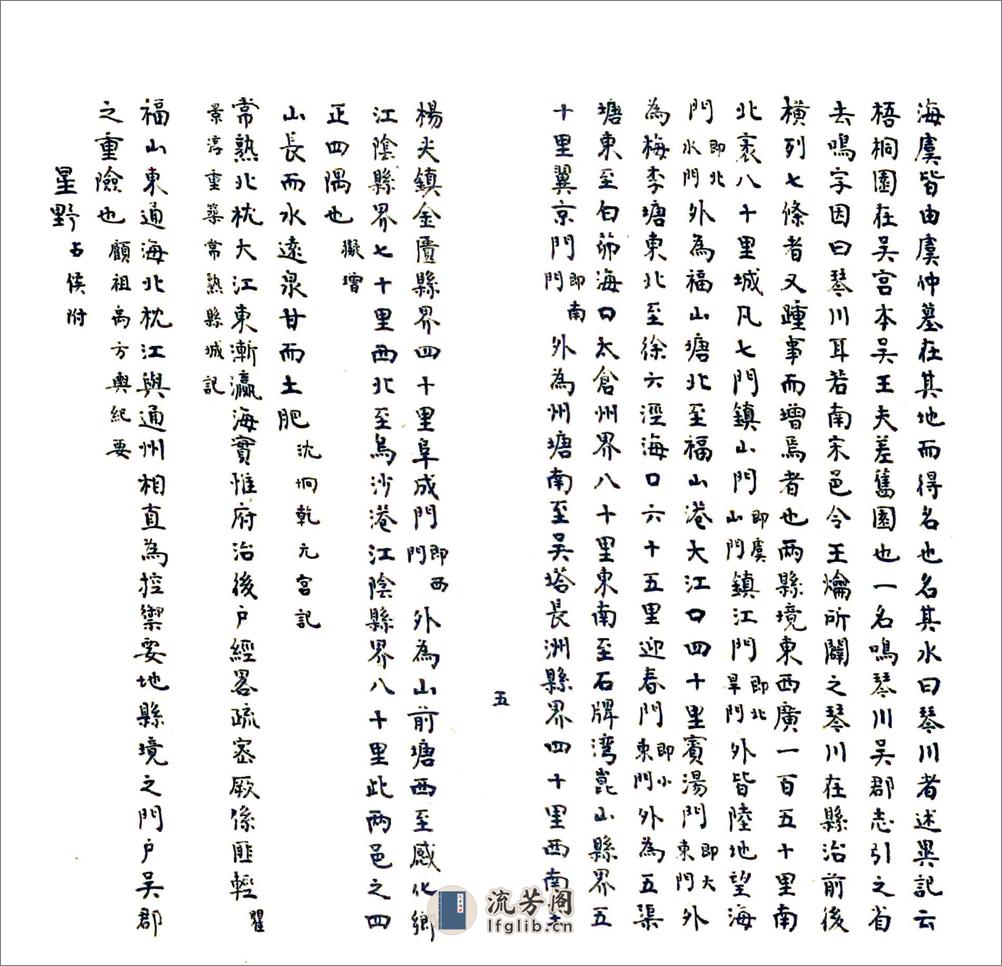 海虞皆由虞仲墓在其地而得名也名其水曰琴川者述異記云
梧桐園在吳宮本吳王夫差舊園也一名鳴琴川吳郡志引之省
去鳴字因曰琴川耳若南宋邑令王爚所闢之琴川在縣治前後
橫列七條者又踵事而增焉者也兩縣境東西廣一百五十里南
北袤八十里城凡七門鎮山門即虞山門鎮江門即北旱門外皆陸地望海
門即北水門外為福山塘北至福山港大江口四十里賓湯門即大東門外
為梅李塘東北至徐六涇海口六十五里迎春門即小東門外為五渠
塘東至白茆海口太倉州界八十里東南至石牌灣崑山縣界五
十里翼京門即南門外為州塘南至吳塔長洲縣界四十里西南至
五
楊尖鎮金匱縣界四十里阜成門即西門外為山前塘西至感化鄉
江陰縣界七十里西北至烏沙港江陰縣界八十里此兩邑之四
正四隅也擬增
山長而水遠泉甘而土肥沈坰乾元宮記
常熟北枕大江東漸瀛海實惟府治後戶經畧疏密厥係匪輕瞿
景淳重築常熟縣城記
福山東通海北枕江與通州相直為控禦要地縣境之門戶吳郡
之重險也顧祖禹方輿紀要
星野占候附
流芳阁
lfglib.cn